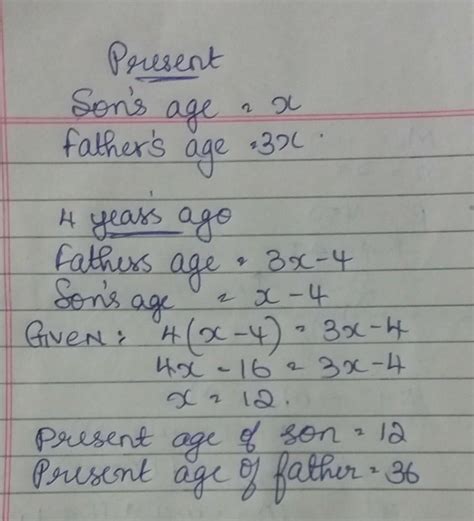 Present
Son's age = x
Father's age = 3x.
4 years ago
Fathers age = 3x-4
Son's age = x-4
Given: 4(x-4) = 3x-4
4x-16 = 3x-4
x = 12.
Present age of son = 12
Present age of father = 36